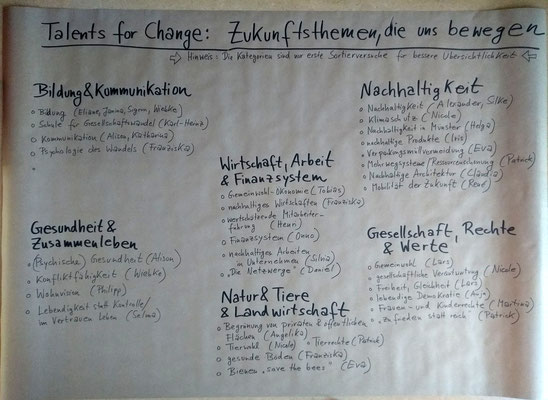 Talents for Change: Zukunftsthemen, die uns bewegen
Hinweis: Die Kategorien sind nur erste Sortierversuche für bessere Übersichtlichkeit
Bildung & Kommunikation
Bildung (Eliane, Janina, Sigrun, Wiebke)
Schule für Gesellschaftswandel (Karl-Heinz)
Kommunikation (Alison, Katharina)
Psychologie des Wandels (Franziska)
Gesundheit &
Zusammenleben
(Psychische) Gesundheit (Alison)
Konfliktfähigkeit (Wiebke)
Wohnvision (Philipp)
Lebendigkeit statt Kontrolle/
im Vertrauen leben (Selma)
Wirtschaft, Arbeit
& Finanzsystem
Gemeinwohl-Ökonomie (Tobias)
nachhaltiges Wirtschaften (Franziska)
wertschätzende Mitarbeiter-
führung (Henri)
Finanzsystem (Onno)
nachhaltiges Arbeiten
in Unternehmen (Silvia)
"Die Netzwerge" (Daniel)
Natur & Tiere
& Landwirtschaft
Begrünung von privaten & öffentlichen
Flächen (Angelika)
Tierwohl (Nicole) Tierrechte (Patrick)
gesunde Böden (Franziska)
Bienen "save the bees" (Eva)
Nachhaltigkeit
Nachhaltigkeit (Alexander, Silke)
Klimaschutz (Nicole)
Nachhaltigkeit in Münster (Helga)
nachhaltige Produkte (Iris)
Verpackungsmüllvermeidung (Eva)
Mehrwegsysteme/Ressourcenschonung (Patrick)
Nachhaltige Architektur (Claudia)
Mobilität der Zukunft (René)
Gesellschaft, Rechte
& Werte
Gemeinwohl (Lars)
gesellschaftliche Verantwortung (Nicole)
Freiheit, Gleichheit (Lars)
lebendige Demokratie (Anja)
Frauen- und Kinderrechte (Martina)
"zufrieden statt reich" (Patrick)